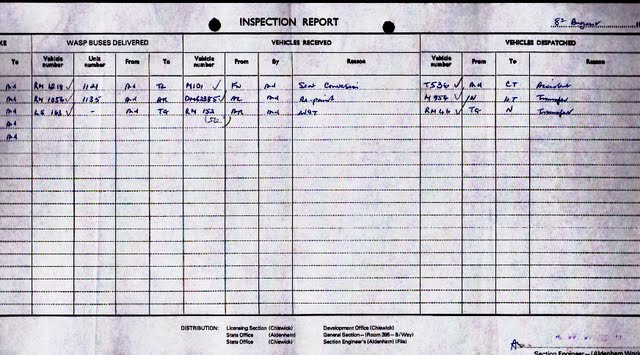 INSPECTION REPORT
8th August
KE WASP BUSES DELIVERED VEHICLES RECEIVED VEHICLES DESPATCHED
To Vehicle number Unit number From To Vehicle number From By Reason Vehicle number From To Reason
Ad RM 1214 1121 Ad M101 FW Ad Seat Conversion T536 Ad CT Accident
Ad RM 1056 1135 Ad AR DMS2385 AL Ad Re-paint M956 N HT Transfer
Ad Ad TG RM 152 AR Ad RM 46 TG N Transfer
Ad
Ad
DISTRIBUTION: Licensing Section (Chiswick) Development Office (Chiswick)
Stats Office (Aldenham) General Section—(Room 395 – B/Way)
Stats Office (Chiswick) Section Engineer's (Aldenham) (File)
Section Engineer—(Aldenham Works)